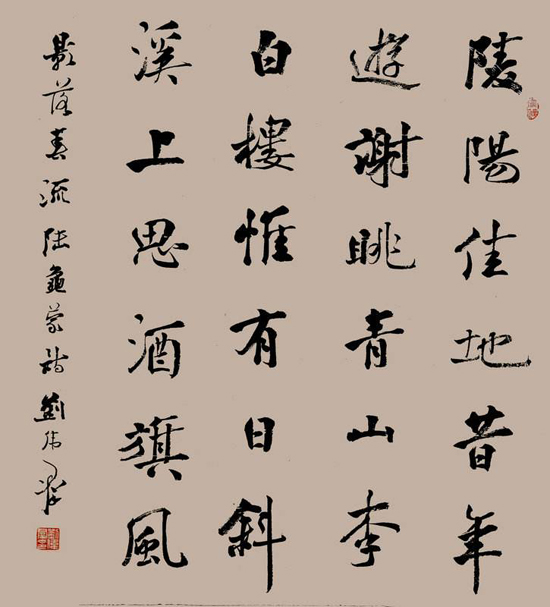 陵陽佳地昔年
遊謝朓青山李
白樓惟有日斜
溪上思酒旗風
影落春流陸龜蒙詩劉伟